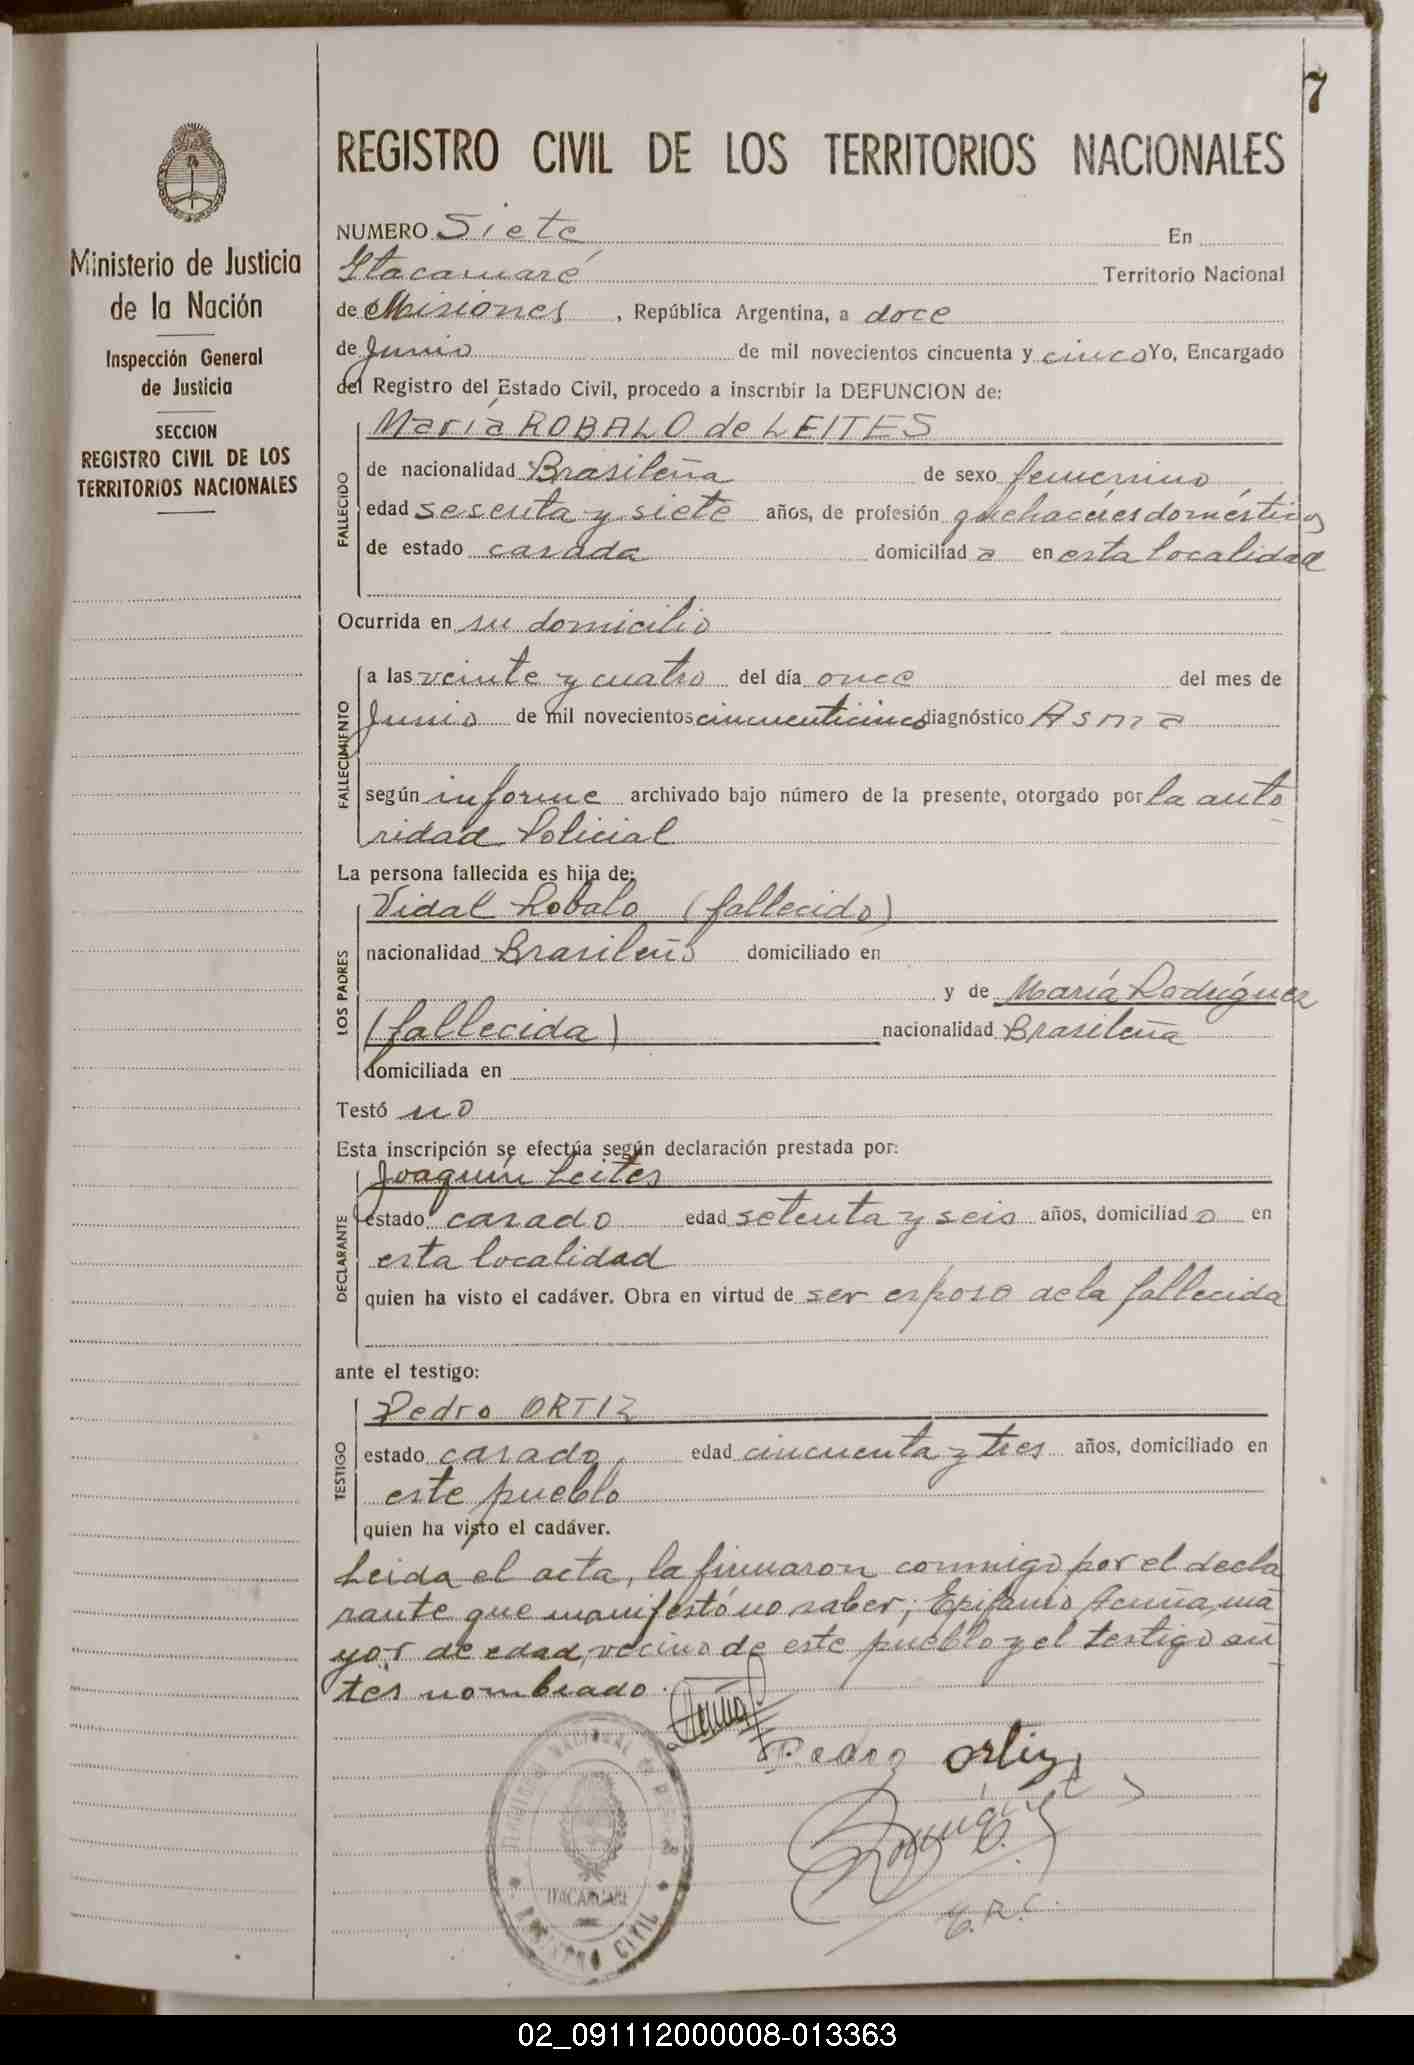 7
REGISTRO CIVIL DE LOS TERRITORIOS NACIONALES
Ministerio de Justicia
de la Nación
Inspección General
de Justicia
SECCION
REGISTRO CIVIL DE LOS
TERRITORIOS NACIONALES
NUMERO Siete En
Itacaruaré Territorio Nacional
de Misiones, República Argentina, a doce
de Junio de mil novecientos cincuenta y cinco Yo, Encargado
del Registro del Estado Civil, procedo a inscribir la DEFUNCION de:
María ROBALO de LEITES
FALLECIDO
de nacionalidad Brasileña de sexo femenino
edad sesenta y siete años, de profesión quehaceres domésticos
de estado casada domiciliad a en esta localidad
Ocurrida en su domicilio
FALLECIMIENTO
a las veinte y cuatro del día once del mes de
Junio de mil novecientos cincuenticinco diagnóstico Asma
según informe archivado bajo número de la presente, otorgado por la auto
ridad Policial
La persona fallecida es hija de:
LOS PADRES
Vidal Robalo (fallecido)
nacionalidad Brasileño domiciliado en
y de María Rodríguez
(fallecida) nacionalidad Brasileña
domiciliada en
Testó no
Esta inscripción se efectúa según declaración prestada por:
DECLARANTE
Joaquín Leites
estado casado edad setenta y seis años, domiciliad o en
esta localidad
quien ha visto el cadáver. Obra en virtud de ser esposo de la fallecida
ante el testigo:
TESTIGO
Pedro ORTIZ
estado casado edad cincuenta y tres años, domiciliado en
este pueblo
quien ha visto el cadáver.
Leida el acta, la firmaron conmigo por el decla
rante que manifestó no saber; Epifanio Acuña, ma
yor de edad, vecino de este pueblo y el testigo an
tes nombrado.
Acuña
Pedro Ortiz
E.R.C.
ITACARUARE
REGISTRO CIVIL
02_091112000008-013363